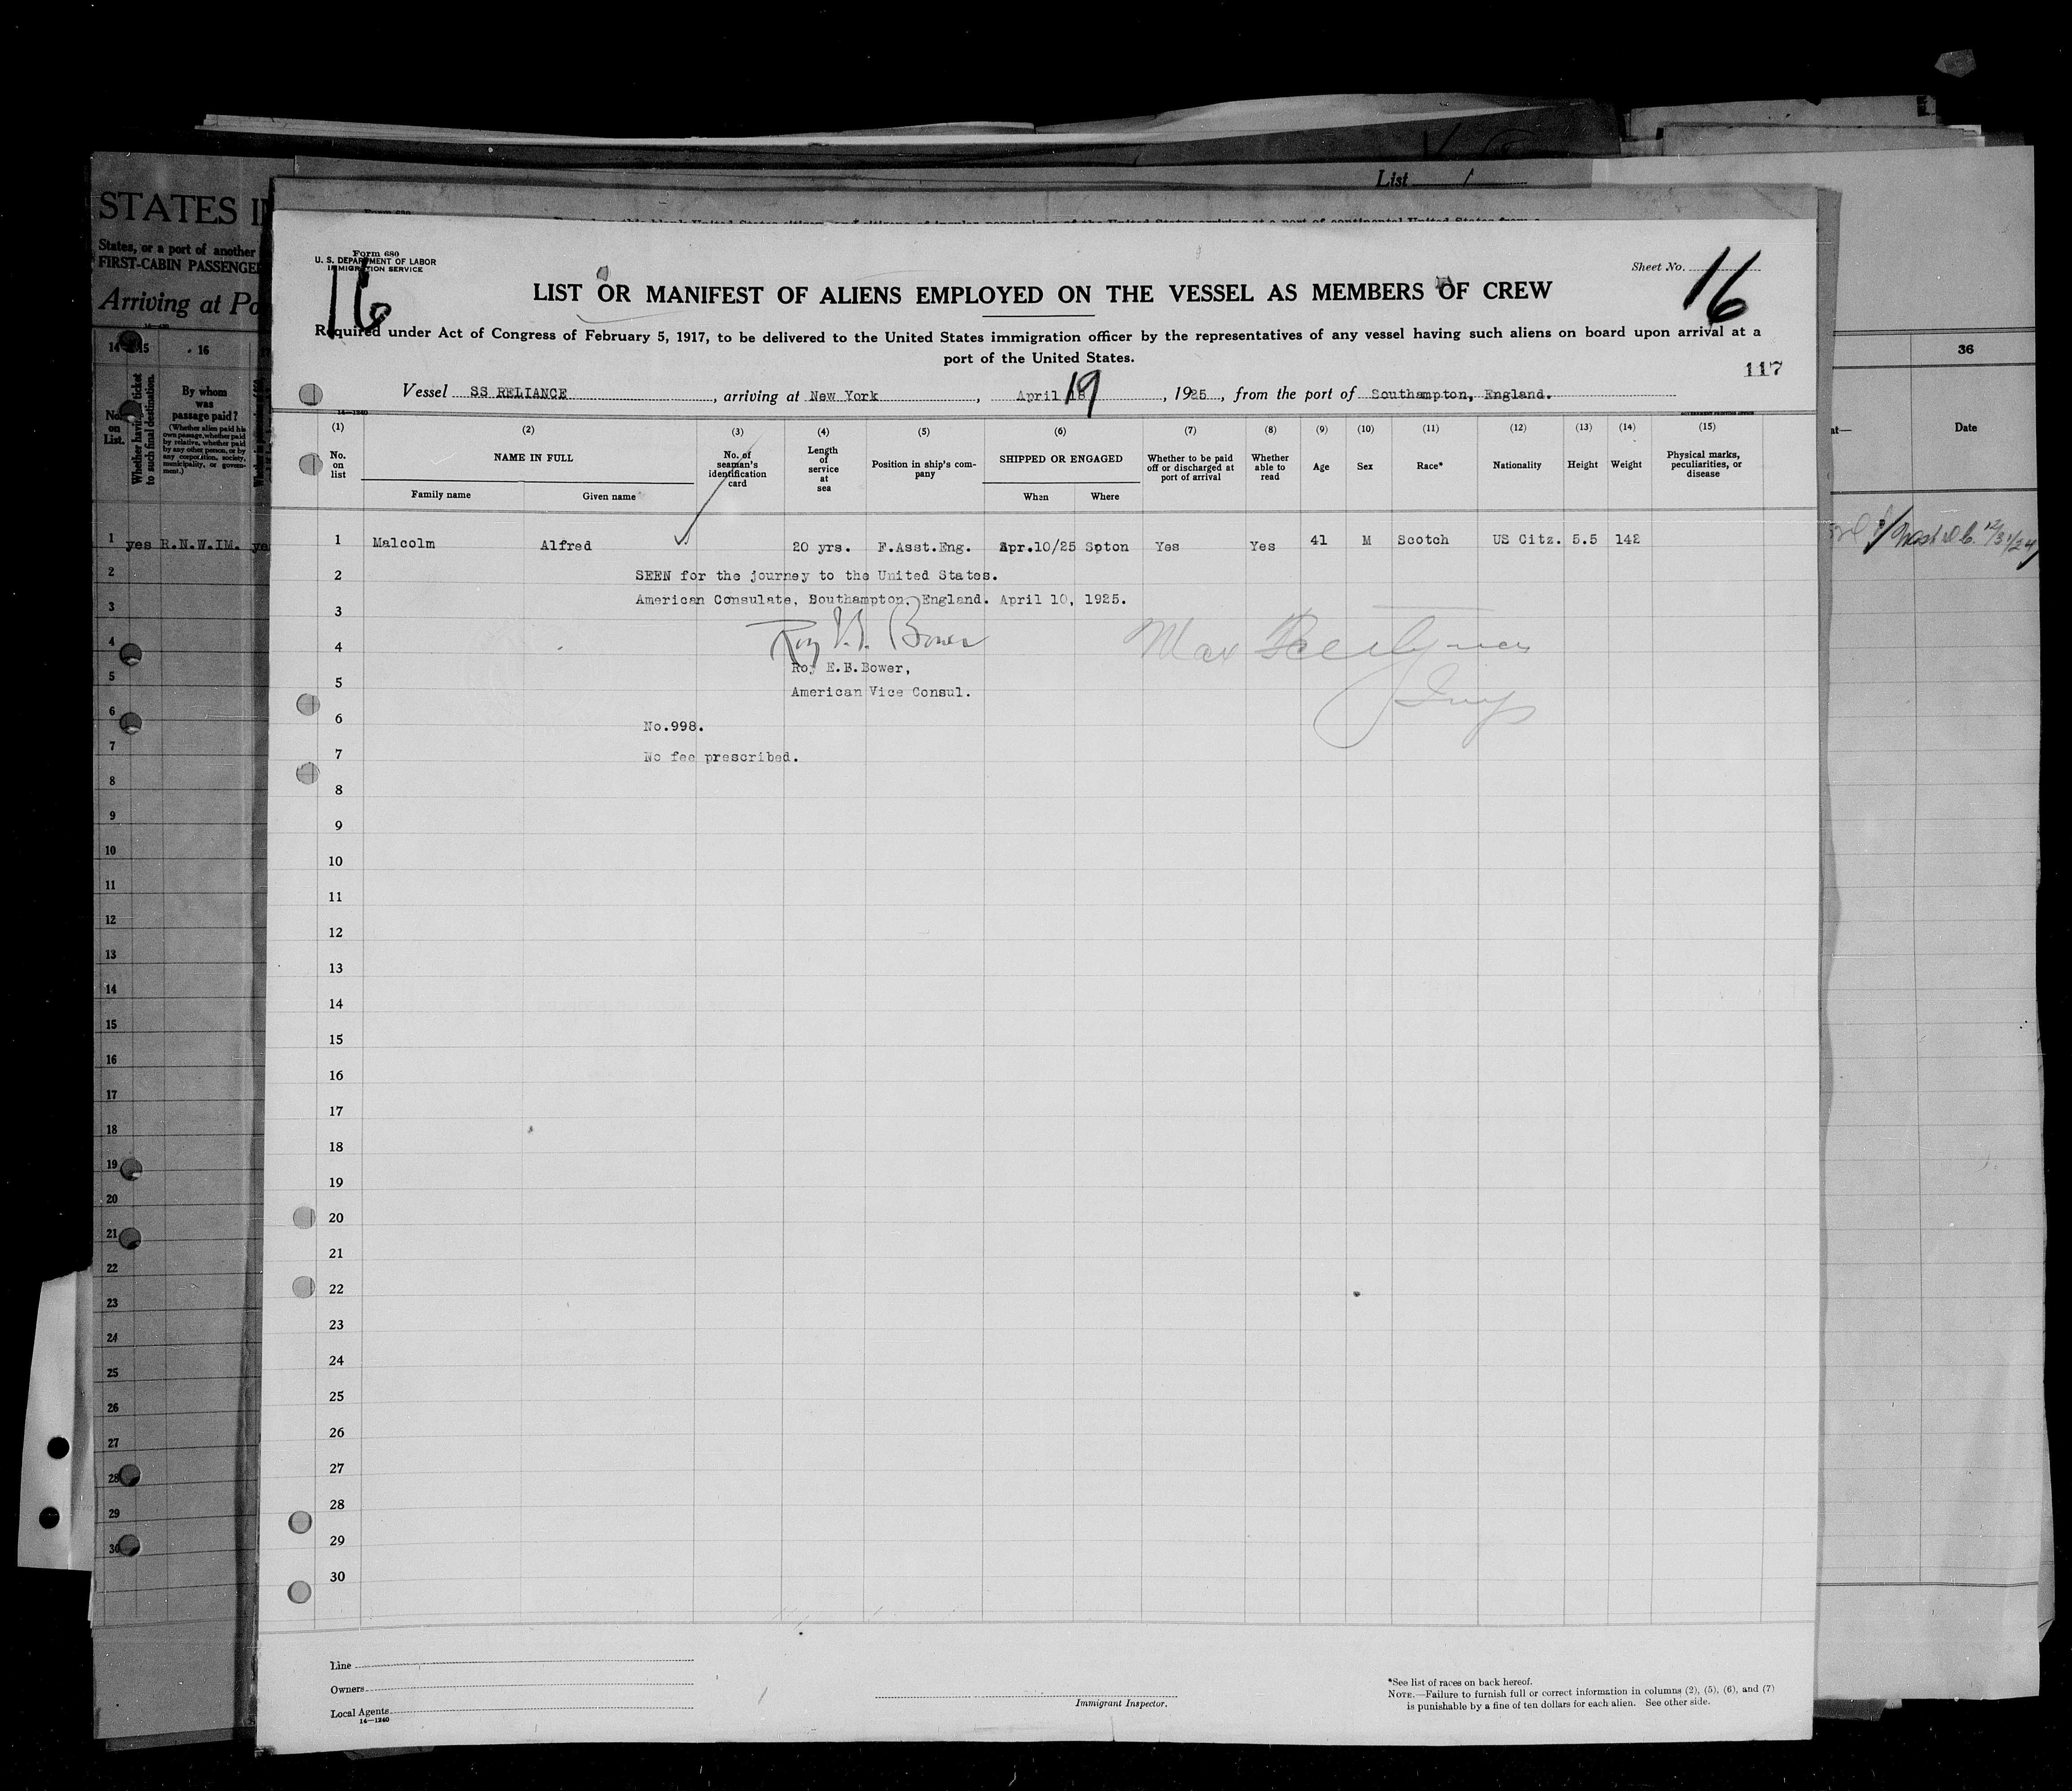 List 1
STATES
States, or a port of another
FIRST-CABIN PASSENGE
Arriving at Po
14 15 16
No. on List.
Whether having ticket to such final destination.
By whom was passage paid?
(Whether alien paid his own passage, whether paid by relative, whether paid by any other person, or by any corporation, society, municipality, or government.)
1 yes R.N.W.IM.
2
3
4
5
6
7
8
9
10
11
12
13
14
15
16
17
18
19
20
21
22
23
24
25
26
27
28
29
30
Form 680
U. S. DEPARTMENT OF LABOR
IMMIGRATION SERVICE
16
Sheet No. 16
LIST OR MANIFEST OF ALIENS EMPLOYED ON THE VESSEL AS MEMBERS OF CREW
Required under Act of Congress of February 5, 1917, to be delivered to the United States immigration officer by the representatives of any vessel having such aliens on board upon arrival at a
port of the United States.
117
Vessel SS RELIANCE, arriving at New York, April 19, 1925, from the port of Southampton, England.
14—1240
GOVERNMENT PRINTING OFFICE
(1) (2) (3) (4) (5) (6) (7) (8) (9) (10) (11) (12) (13) (14) (15)
No. on list
NAME IN FULL
Family name
Given name
No. of seaman's identification card
Length of service at sea
Position in ship's company
SHIPPED OR ENGAGED
When
Where
Whether to be paid off or discharged at port of arrival
Whether able to read
Age
Sex
Race*
Nationality
Height
Weight
Physical marks, peculiarities, or disease
1 Malcolm Alfred 20 yrs. F.Asst.Eng. Apr.10/25 Soton Yes Yes 41 M Scotch US Citz. 5.5 142
2 SEEN for the journey to the United States.
American Consulate, Southampton, England. April 10, 1925.
3
4
Roy E.B.Bower,
5 American Vice Consul.
6 No.998.
7 No fee prescribed.
8
9
10
11
12
13
14
15
16
17
18
19
20
21
22
23
24
25
26
27
28
29
30
Line
Owners
Local Agents
14—1240
Immigrant Inspector.
*See list of races on back hereof.
NOTE.—Failure to furnish full or correct information in columns (2), (5), (6), and (7)
is punishable by a fine of ten dollars for each alien. See other side.
36
Date